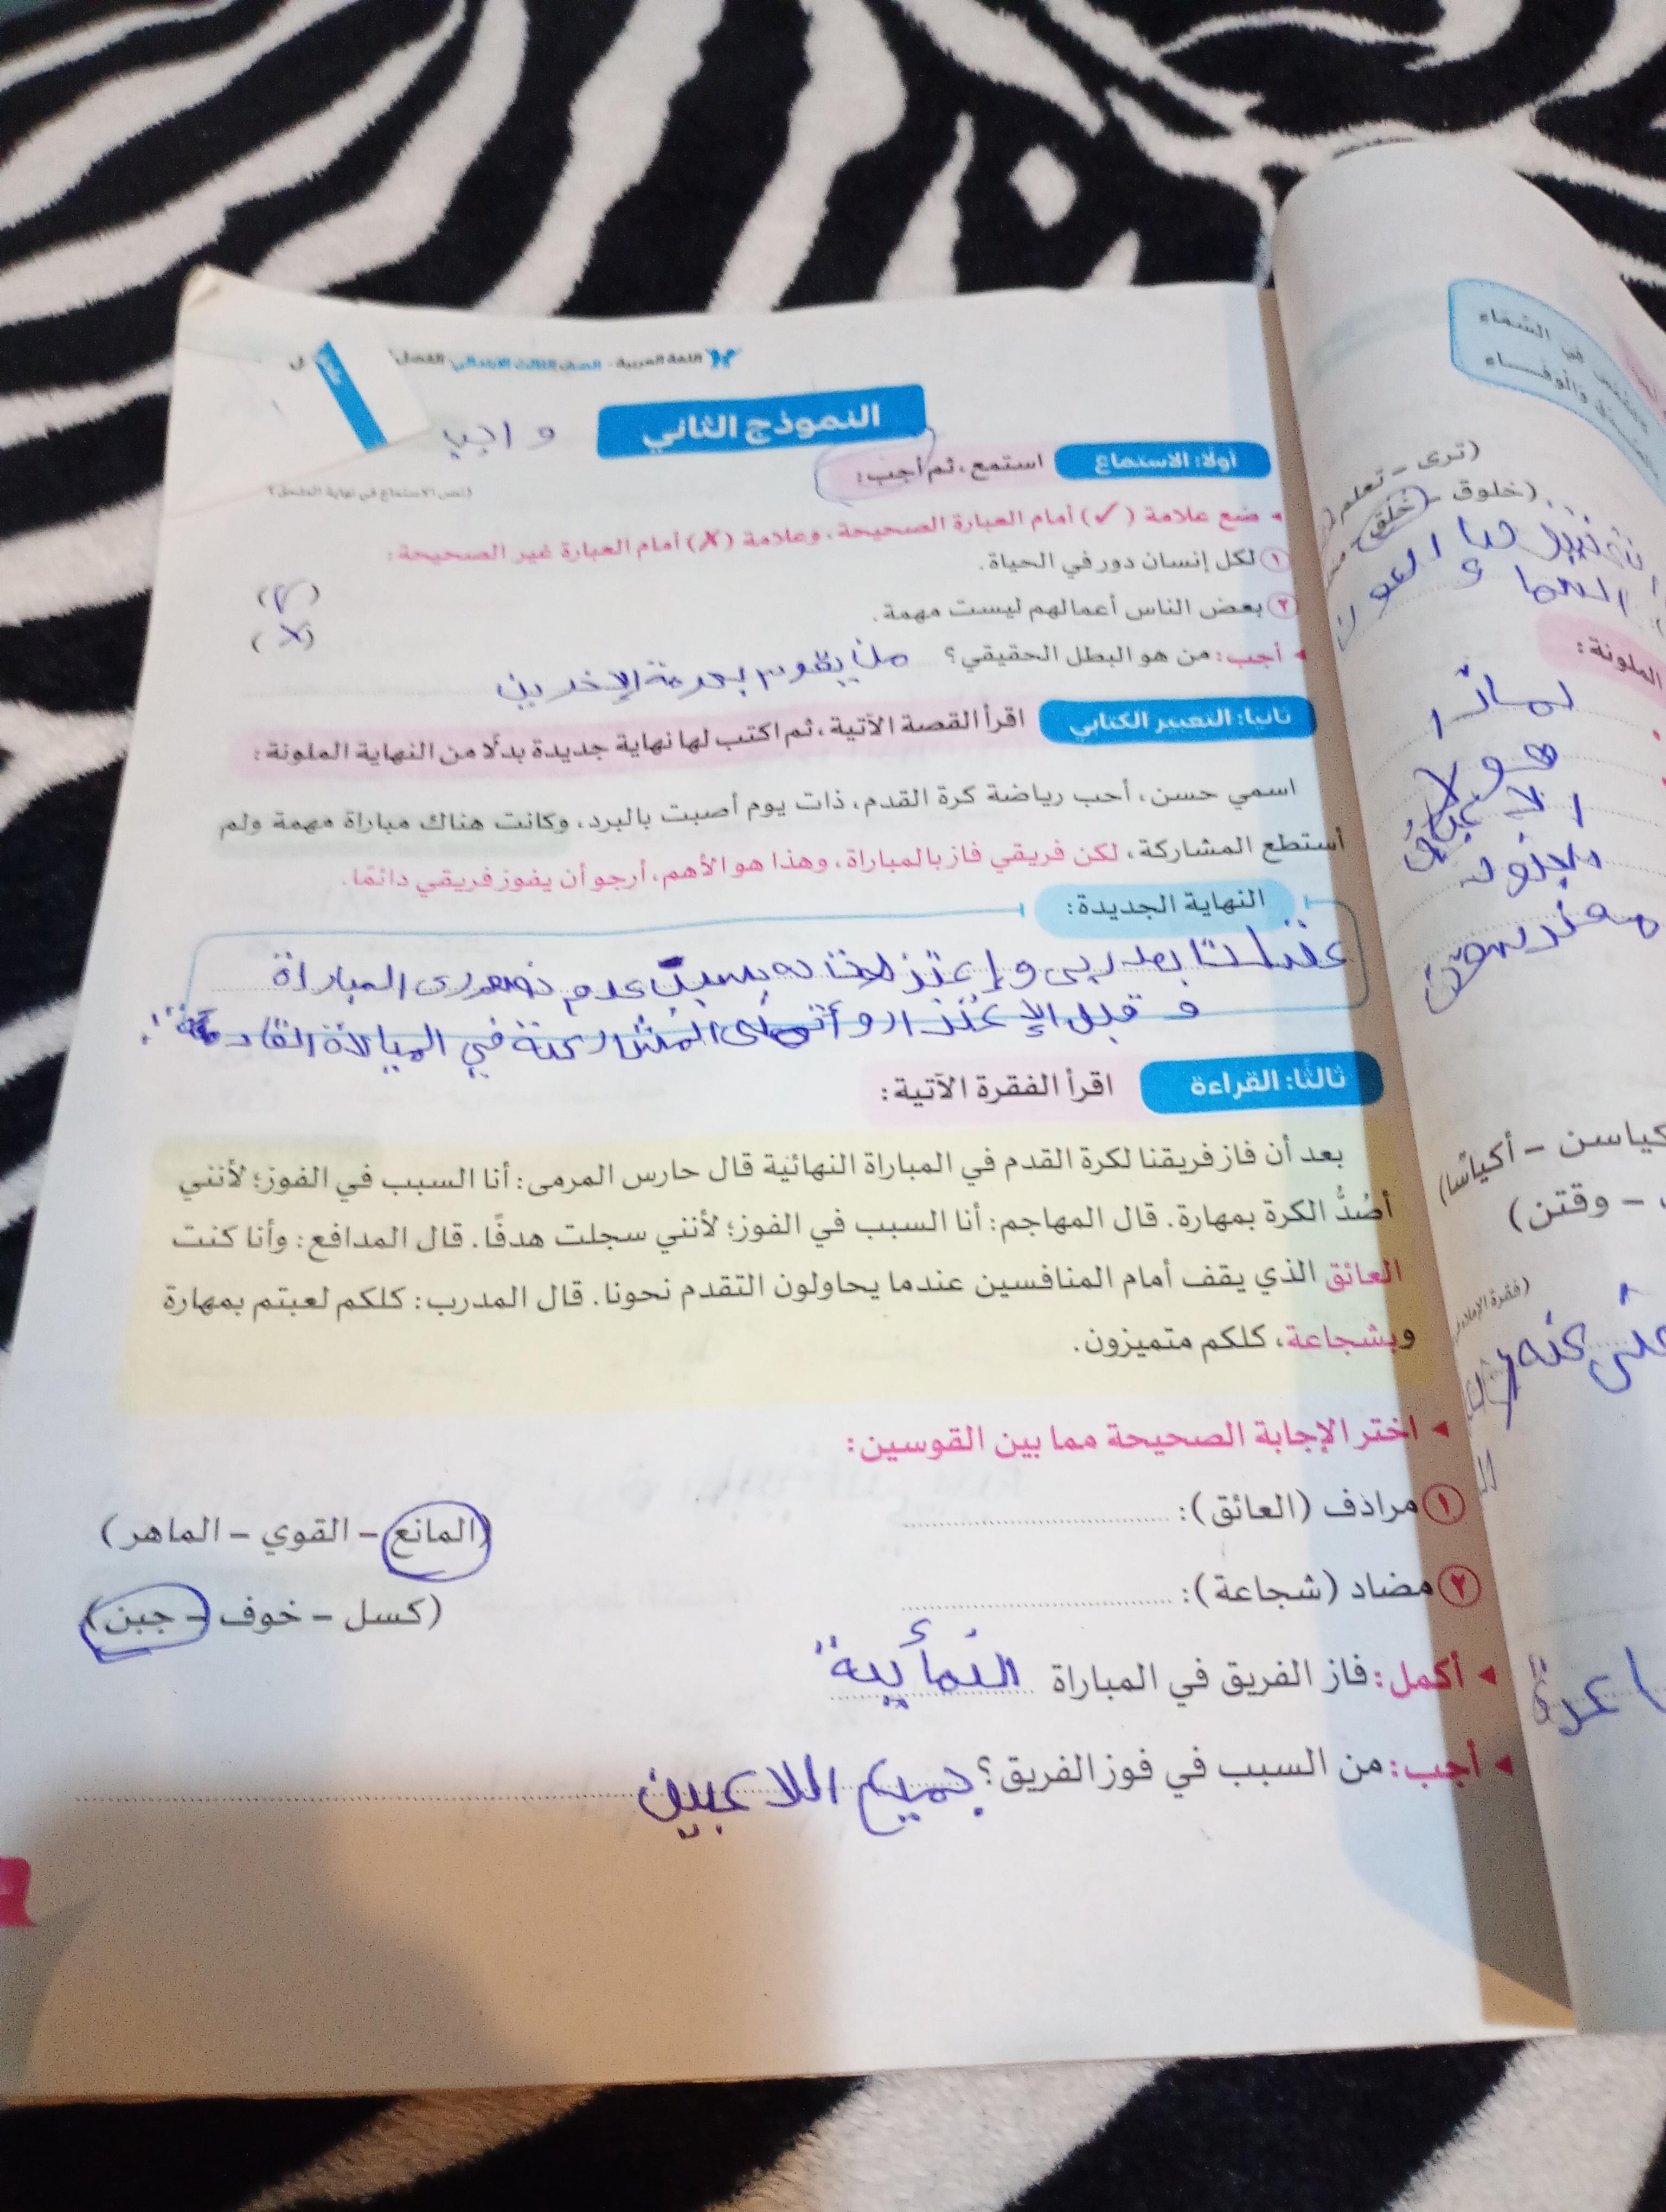 اللغة العربية - الصف الثالث الابتدائي - الفصل
النموذج الثاني
واجب
أولًا: الاستماع استمع، ثم أجب:
(نص الاستماع في نهاية الملحق)
ضع علامة (✓) أمام العبارة الصحيحة، وعلامة (✗) أمام العبارة غير الصحيحة:
١ لكل إنسان دور في الحياة. (✓)
٢ بعض الناس أعمالهم ليست مهمة. (✗)
أجب: من هو البطل الحقيقي؟ من يقوم بخدمة الإخرين
ثانيًا: التعبير الكتابي اقرأ القصة الآتية، ثم اكتب لها نهاية جديدة بدلًا من النهاية الملونة:
اسمي حسن، أحب رياضة كرة القدم، ذات يوم أصبت بالبرد، وكانت هناك مباراة مهمة ولم
أستطع المشاركة، لكن فريقي فاز بالمباراة، وهذا هو الأهم، أرجو أن يفوز فريقي دائمًا.
النهاية الجديدة:
بمدربي وإعتزلت له بسبب عدم المباراة
وقبل الإعتذار وأتمنى المشاركة في المباراة القادمة.
ثالثًا: القراءة اقرأ الفقرة الآتية:
بعد أن فاز فريقنا لكرة القدم في المباراة النهائية قال حارس المرمى: أنا السبب في الفوز؛ لأنني
أصُدُّ الكرة بمهارة. قال المهاجم: أنا السبب في الفوز؛ لأنني سجلت هدفًا. قال المدافع: وأنا كنت
العائق الذي يقف أمام المنافسين عندما يحاولون التقدم نحونا. قال المدرب: كلكم لعبتم بمهارة
وبشجاعة، كلكم متميزون.
اختر الإجابة الصحيحة مما بين القوسين:
١ مرادف (العائق): (المانع - القوي - الماهر)
٢ مضاد (شجاعة): (كسل - خوف - جبن)
أكمل: فاز الفريق في المباراة النهأيية
أجب: من السبب في فوز الفريق؟ جميع اللاعبين
في السماء
والوفاء
(ترى - تعلم
(خلوق - خلق
السماء
الملونة:
هولاء
مهندسون
أكياسن - أكياسًا)
- وقتن)
(فقرة الإملاء